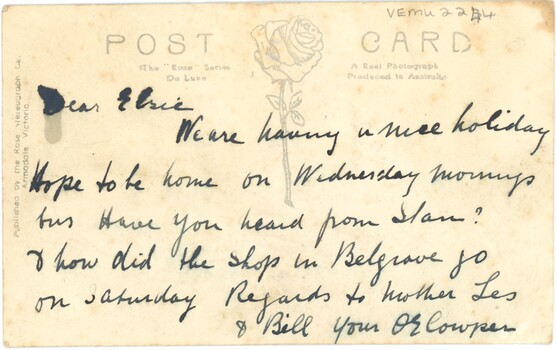 VEMU 2234
POST CARD
The "Rose" Series
De Luxe
A Real Photograph
Produced in Australia
Published by the Rose Stereograph Co.
Armadale Victoria.
Dear Elsie
We are having a nice holiday
Hope to be home on Wednesday mornings
bus Have you heard from Stan?
& how did the shop in Belgrave go
on Saturday Regards to Mother Les
& Bill Your